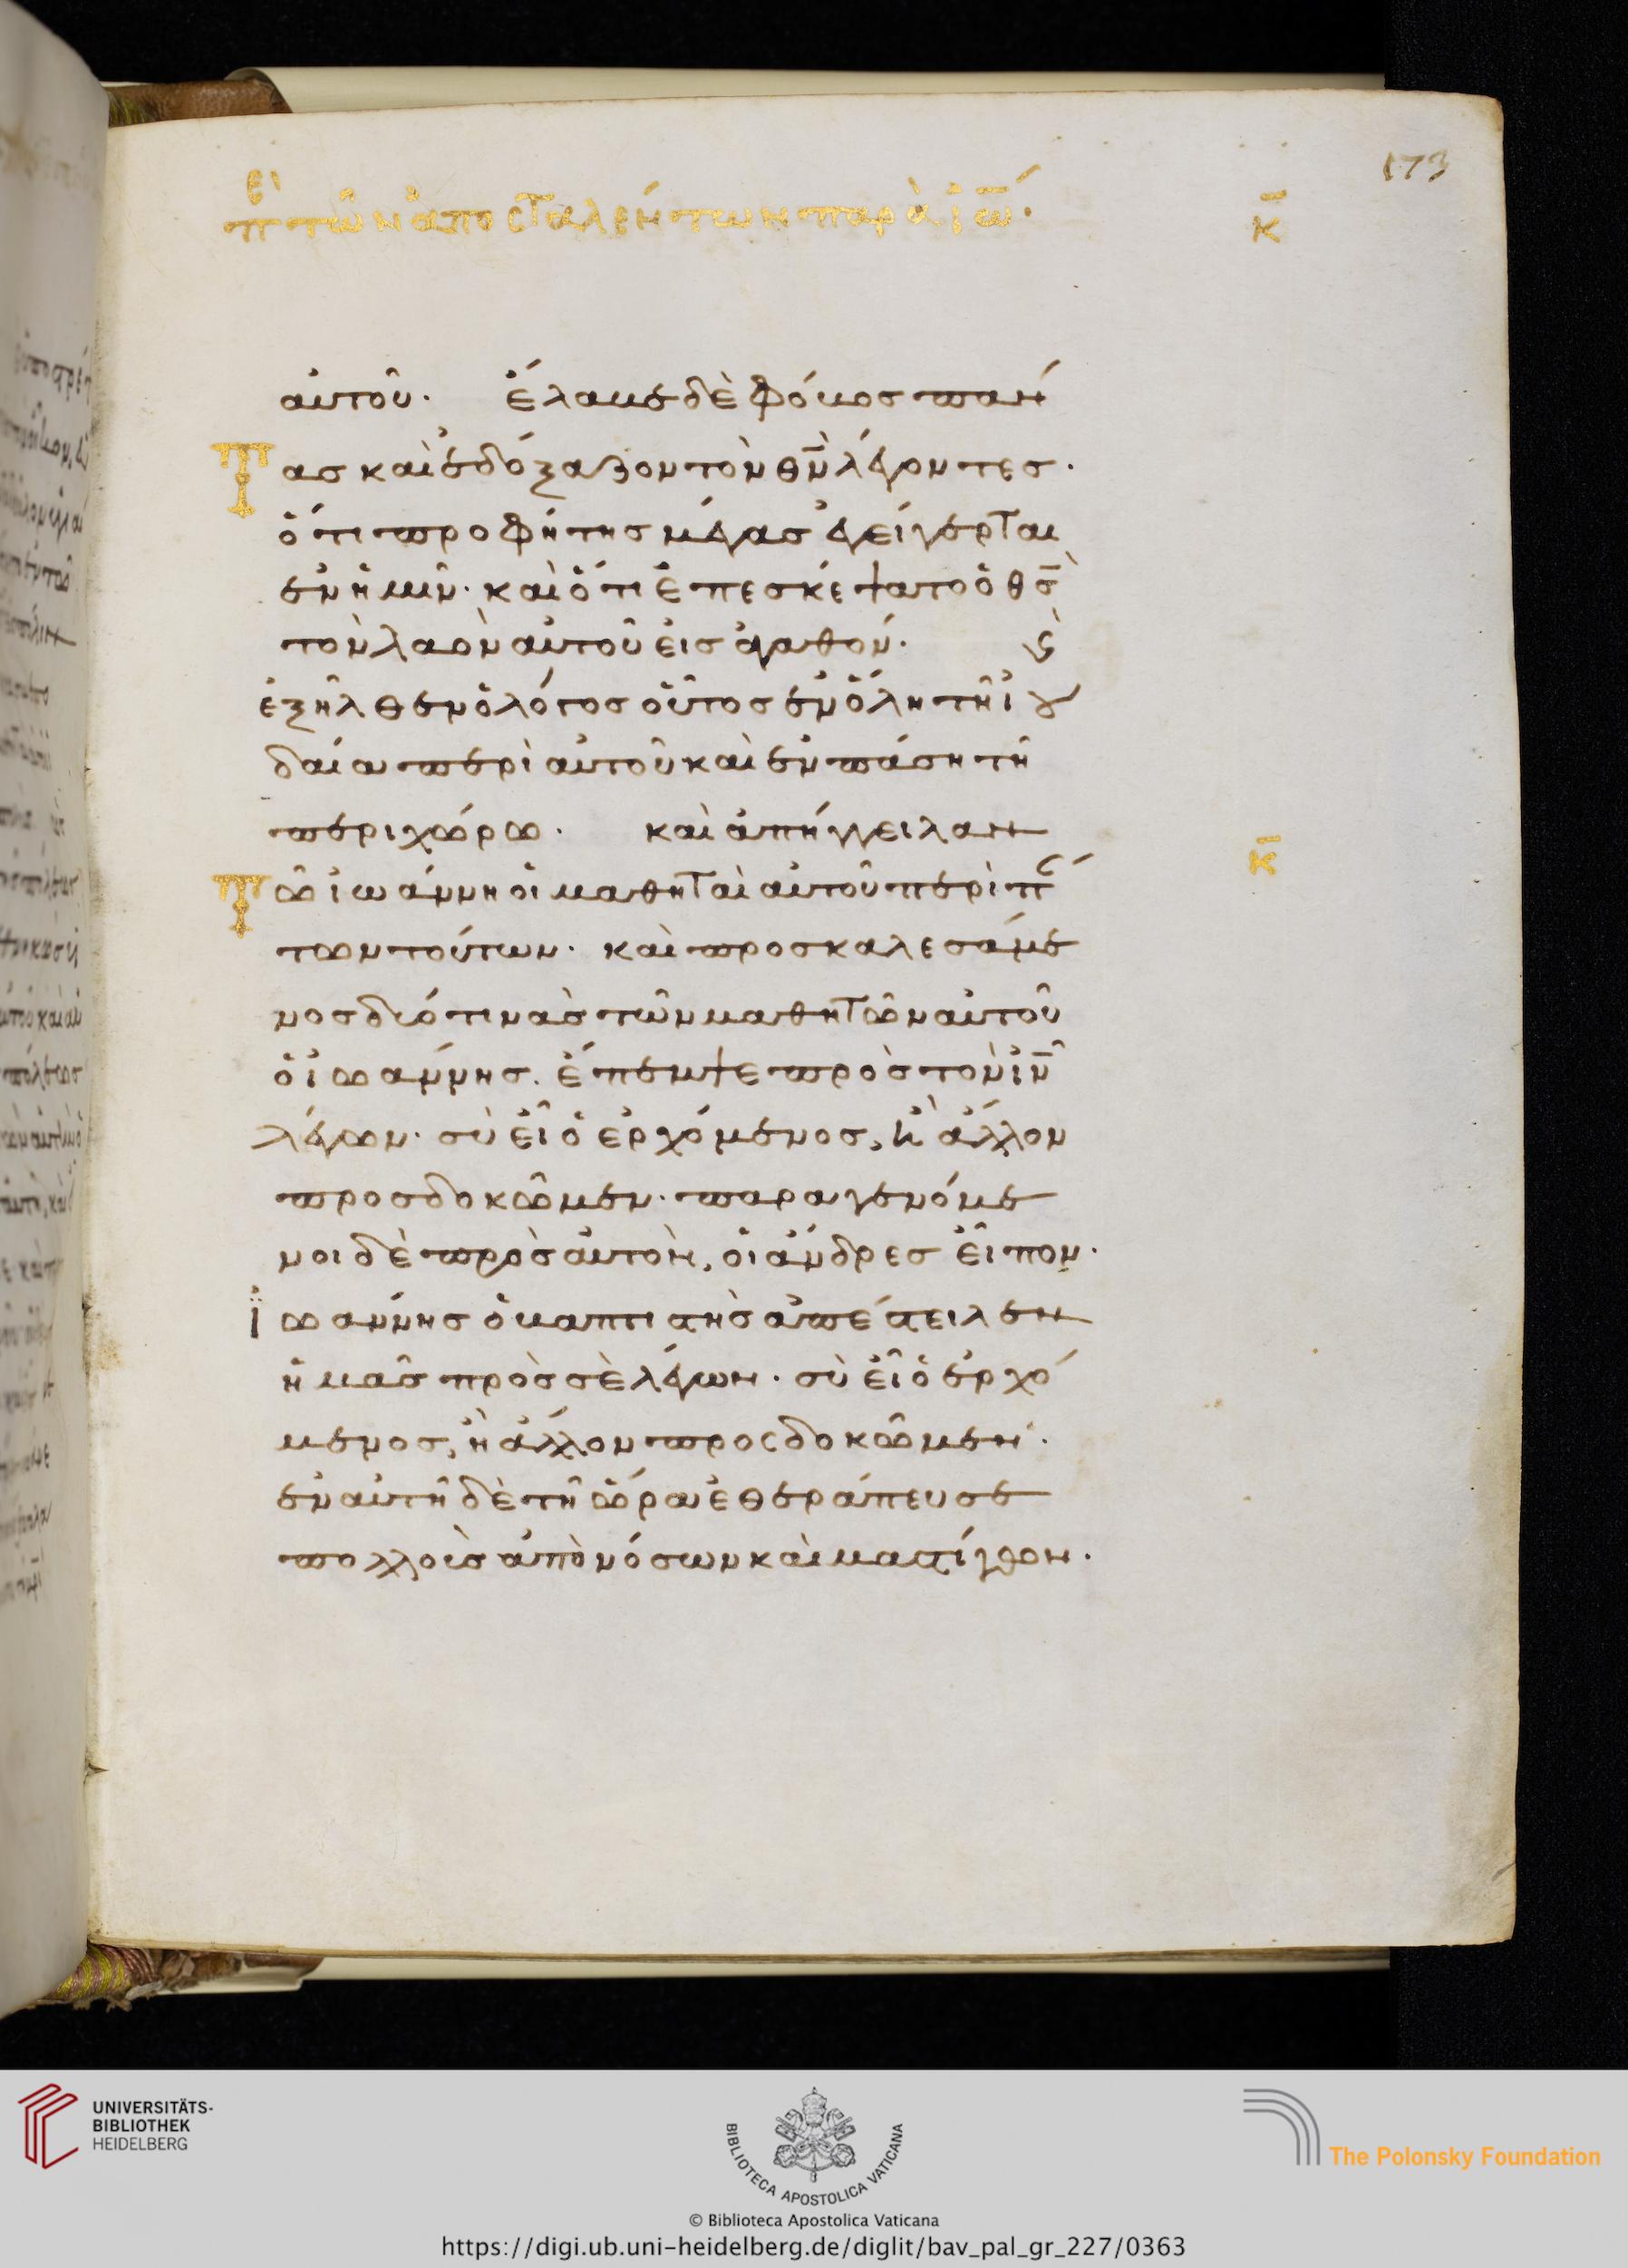 173
πὲ τῶν ἀποσταλέντων παρὰ ἰω̅. κ̅
αὐτοῦ. ἔλαβε δὲ φόβος πάν
Τας καὶ ἐδόξαζον τὸν θ̅ν̅ λέγοντες.
ὅτι προφήτης μέγας ἐγείγερται
ἐν ἡμῖν. καὶ ὅτι ἐπεσκέψατο ὁ θ̅ς̅
τὸν λαὸν αὐτοῦ εἰς ἀγαθόν. Κ̀
ἐξῆλθεν ὁ λόγος οὗτος ἐν ὅλη τῆ ἰου
δαία περὶ αὐτοῦ καὶ ἐν πάση τῆ
περιχώρω. καὶ ἀπήγγειλαν
Τῶ ἰωάννη οἱ μαθηταὶ αὐτοῦ περὶ πάν κ̅
των τούτων. καὶ προσκαλεσάμε
νος δύο τινὰς τῶν μαθητῶν αὐτοῦ
ὁ ἰωάννης. ἔπεμψε πρὸς τὸν ἰ̅ν̅
λέγων. σὺ εἶ ὁ ἐρχόμενος, ἢ ἄλλον
προσδοκῶμεν. παραγενόμε
νοι δὲ πρὸς αὐτὸν, οἱ ἄνδρες εἶπον.
ἰωάννης ὁ βαπτιστὴς ἀπέστειλεν
ἡμᾶς πρὸς σὲ λέγων. σὺ εἶ ὁ ἐρχό
μενος, ἢ ἄλλον προσδοκῶμεν.
ἐν αὐτῆ δὲ τῆ ὥρα ἐθεράπευσε
πολλοὺς ἀπὸ νόσων καὶ μαστίγων.
UNIVERSITÄTS-
BIBLIOTHEK
HEIDELBERG
BIBLIOTECA APOSTOLICA VATICANA
© Biblioteca Apostolica Vaticana
The Polonsky Foundation
https://digi.ub.uni-heidelberg.de/diglit/bav_pal_gr_227/0363